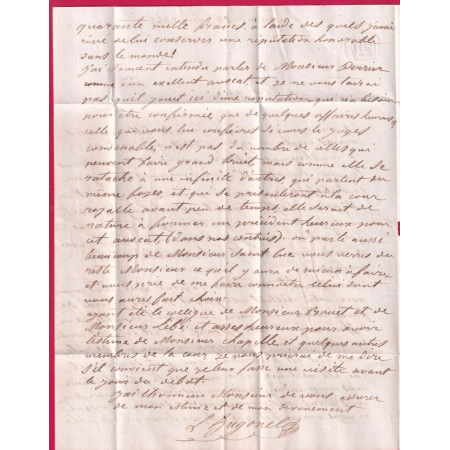 quarante mille francs à l'aide des quels j'aurai
de lui conserver une réputation honorable
dans le monde!
J'ai souvent entendu parler de Monsieur Perrier
comme d'un exellent avocat et je ne vous tairai
pas qu'il jouit ici d'une reputation qui n'a besoin
pour être confirmée que de quelques affaires
celle que vous lui confierez si vous le jugez
convenable, n'est pas du nombre de celles qui
peuvent faire grand bruit mais comme elle se
ratache à une infinité d'autres, qui partent du
même foyer, et qui se presenteront à la cour
royalle avant peu de temps, elle serait de
nature à former un précédent heureux pour
cet avocat (dans nos contrées). on parle aussi
beaucoup de Monsieur Saint Luc vous verrez du
reste Monsieur ce qu'il y aura de mieux à faire
et vous prie de me faire connaitre celui dont
vous aurez fait choix.
ayant été le collegue de Monsieur et de
Monsieur et asses heureux pour avoir
l'estime de Monsieur chapelle et quelques autres
membres de la cour, je vous prierai de me dire
s'il convient que je leur fasse une visite avant
le jour du débat.
J'ai l'honneur Monsieur de vous assurer
de mon estime et de mon dévouement